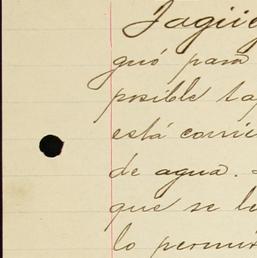 Jagüe
guó para
posible ta
está corri
de agua.
que se l
lo permi